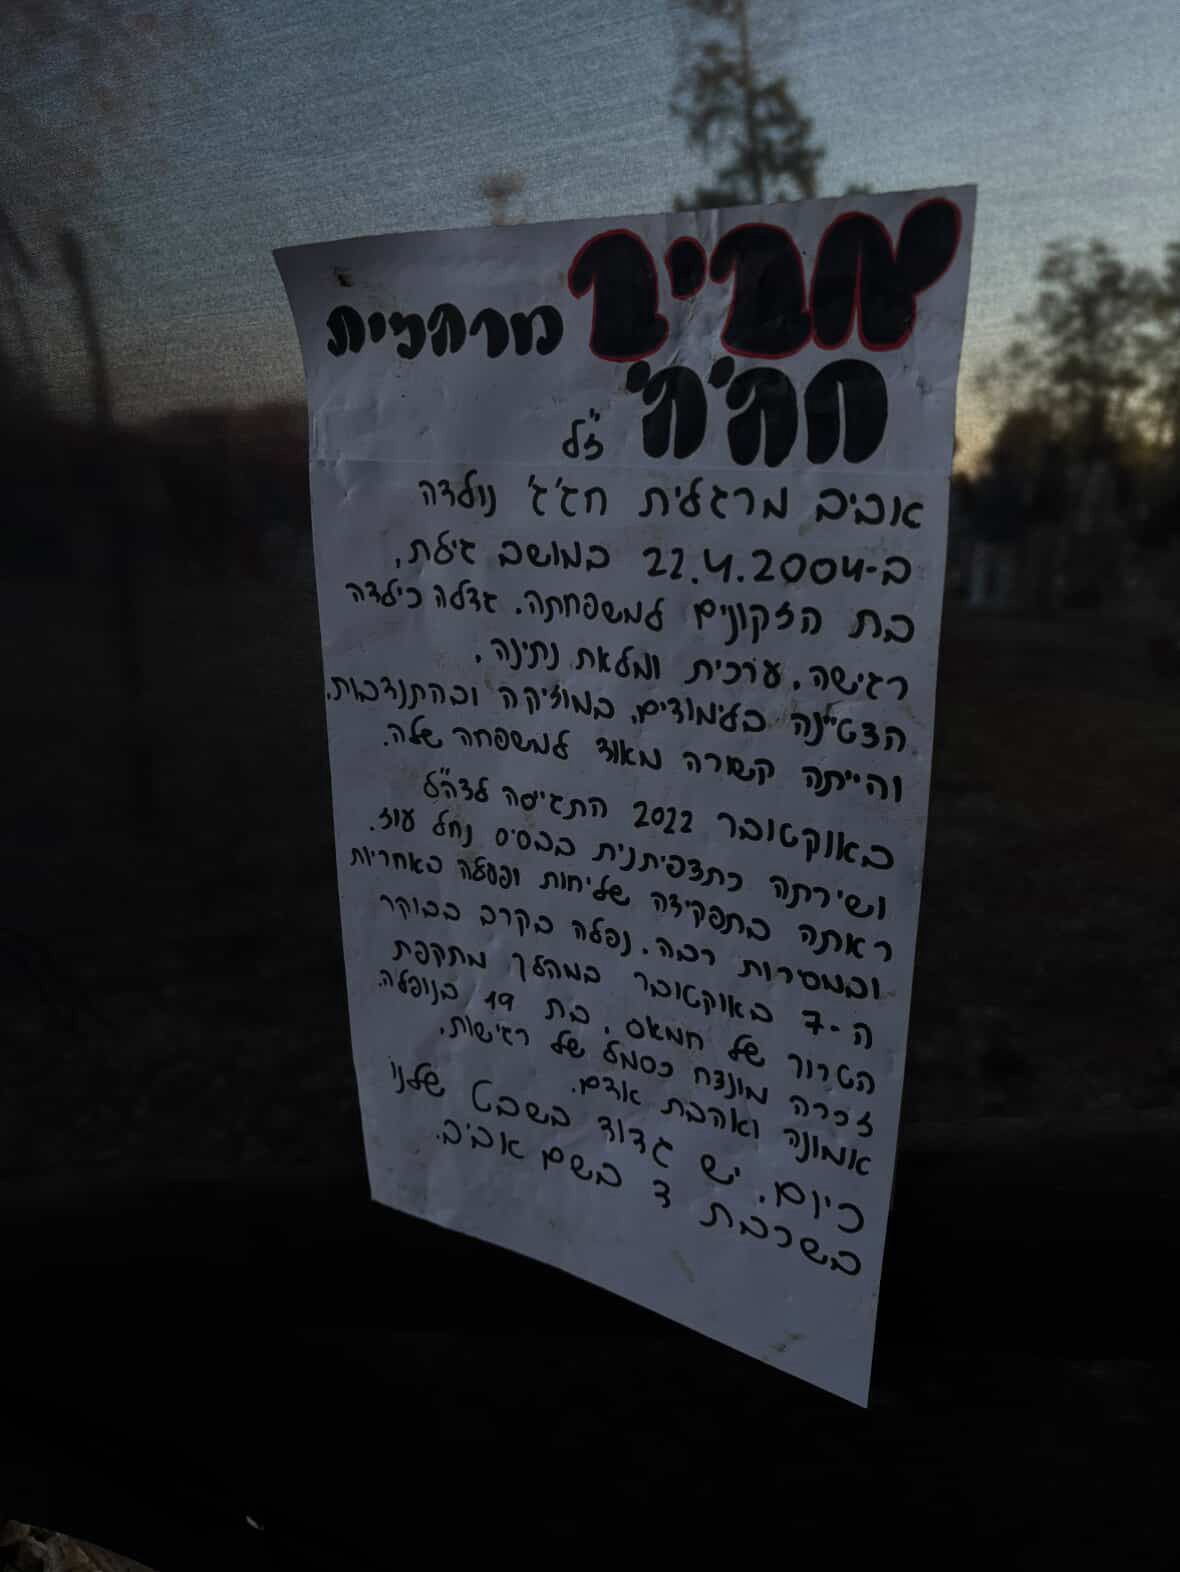 אביב מרגלית
חג'ג' ז"ל
אביב מרגלית חג'ג' נולדה
ב-22.4.2004 במושב גילת,
בת הזקונים למשפחתה. גדלה כילדה
רגישה, ערכית ומלאת נתינה,
הצטיינה בלימודים, במוזיקה ובהתנדבות,
והייתה קשורה מאוד למשפחה שלה.
באוקטובר 2022 התגייסה לצה"ל
ושירתה כתצפיתנית בבסיס נחל עוז.
ראתה בתפקידה שליחות ופעלה באחריות
ובמסירות רבה. נפלה בקרב בבוקר
ה-7 באוקטובר במהלך מתקפת
הטרור של חמאס, בת 19 בנופלה.
זכרה מונצח כסמל של רגישות,
אמונה ואהבת אדם.
כיום, יש גדוד בשבט שלנו
בשכבת ד בשם אביב.